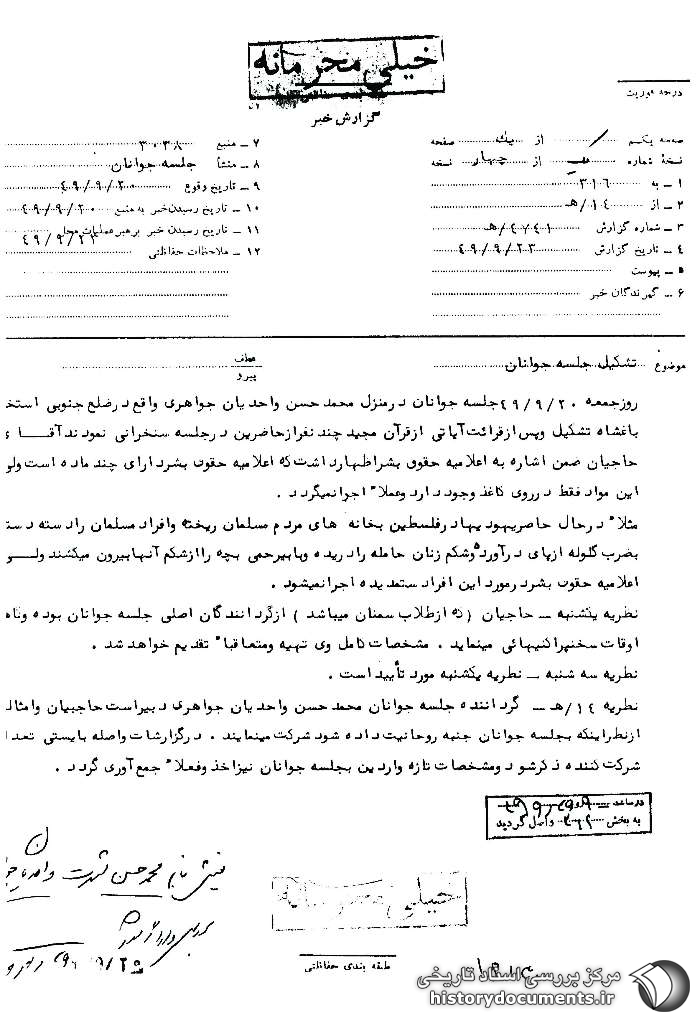 خیلی محرمانه
گزارش خبر
درجه فوریت
صفحه یکم / از یک صفحه
نسخهٔ شماره از چهار نسخه
۱ ـ به ۳۱۶
۲ ـ از ۱۴/هـ
۳ ـ شماره گزارش ۴۷۴۱/هـ
۴ ـ تاریخ گزارش ۴۹/۹/۲۳
۵ ـ پیوست
۶ ـ گیرندگان خبر
۷ ـ منبع ۳۰۳۸
۸ ـ منشأ جلسه جوانان
۹ ـ تاریخ وقوع ۴۹/۹/۲۰
۱۰ ـ تاریخ رسیدن خبر به منبع ۴۹/۹/۲۰
۱۱ ـ تاریخ رسیدن خبر برهبر عملیات محل ۴۹/۹/۲۳
۱۲ ـ ملاحظات حفاظتی
موضوع تشکیل جلسه جوانان
عطف
پیرو
روزجمعه ۴۹/۹/۲۰ جلسه جوانان درمنزل محمد حسن واحدیان جواهری واقع درضلع جنوبی استخ
باغشاه تشکیل وپس ازقرائت آیاتی ازقرآن مجید چند نفرازحاضرین درجلسه سخنرانی نمودند آقای
حاجیان ضمن اشاره به اعلامیه حقوق بشراظهارداشت که اعلامیه حقوق بشردارای چند ماده است ولی
این مواد فقط درروی کاغذ وجود دارد وعملاً اجرانمیگردد .
مثلاً درحال حاضریهود یهادرفلسطین بخانه های مردم مسلمان ریخته وافراد مسلمان رادسته دسته
بضرب گلوله ازپای درآورده وشکم زنان حامله رادریده وبابیرحمی بچه راازشکم آنهابیرون میکشند ولی
اعلامیه حقوق بشردرمورد این افراد ستمدیده اجرانمیشود .
نظریه یکشنبه ـ حاجیان (که ازطلاب سمنان میباشد ) ازگردانندگان اصلی جلسه جوانان بوده و
اوقات سخنرانیهائی مینماید . مشخصات کامل وی تهیه ومتعاقباً تقدیم خواهد شد .
نظریه سه شنبه ـ نظریه یکشنبه مورد تأیید است .
نظریه ۱۴/هـ ـ گرداننده جلسه جوانان محمد حسن واحدیان جواهری دبیراست حاجبیان وامثال
ازنظراینکه بجلسه جوانان جنبه روحانیت داده شود شرکت مینمایند . درگزارشات واصله بایستی تعداد
شرکت کننده ذکرشود ومشخصات تازه واردین بجلسه جوانان نیزاخذ وفعلاً جمع آوری گردد .
در ساعت
به بخش ۳۱۲ واصل گردید
خیلی محرمانه
محمد حسن شهرت
طبقه بندی حفاظتی
مرکز بررسی اسناد تاریخی
historydocuments.ir